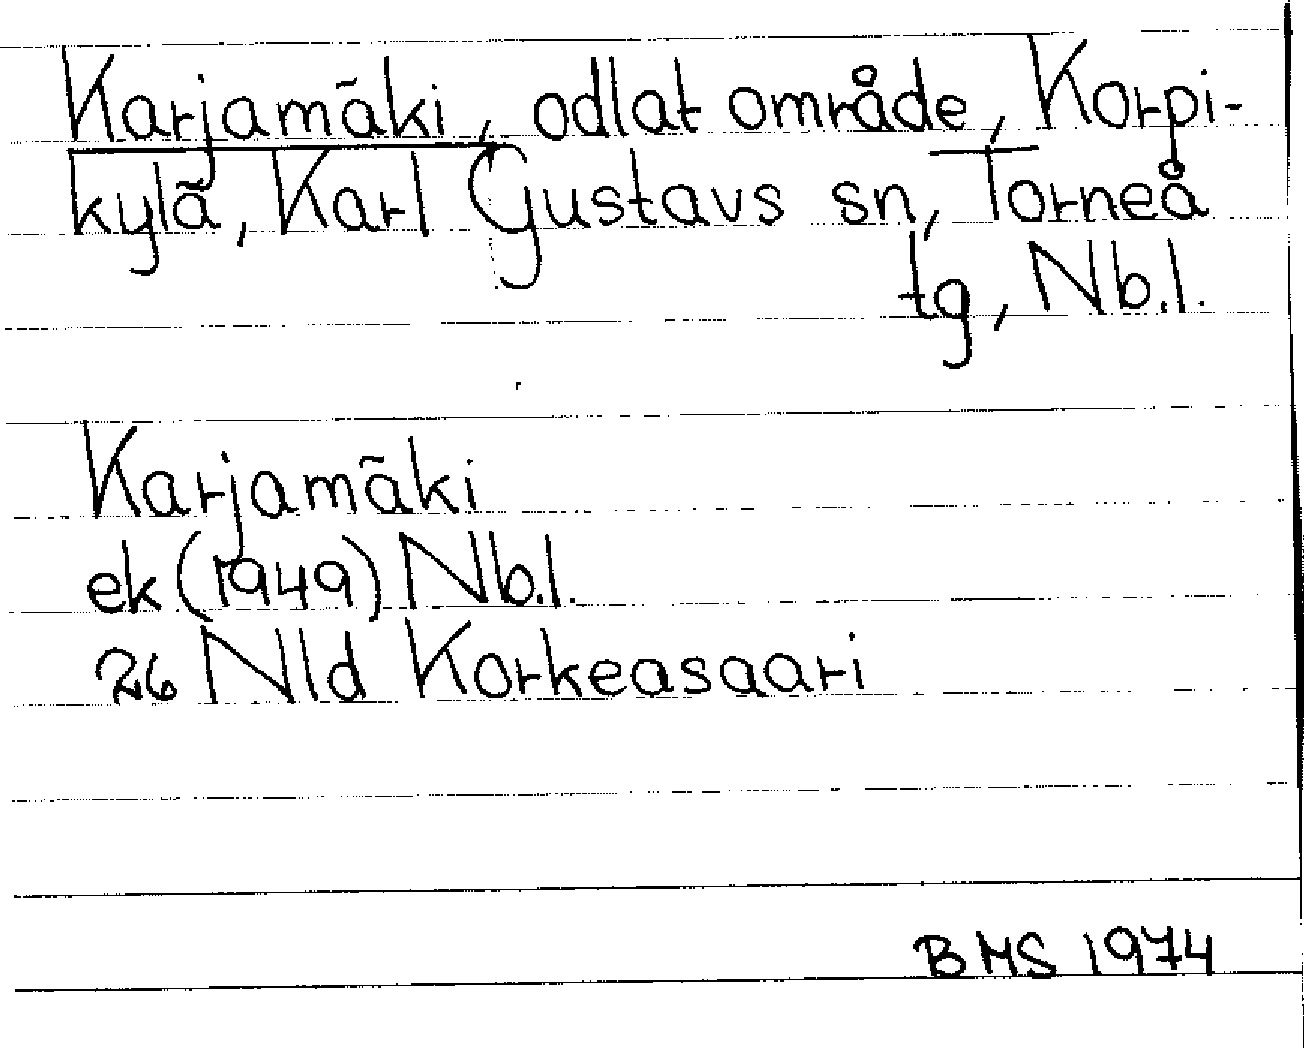 Karjamäki, odlat område, Korpi-
kylä, Karl Gustavs sn, Torneå
tg, Nb.l.
Karjamäki
ek (1949) Nb.l.
26 Nld Korkeasaari
BMS 1974